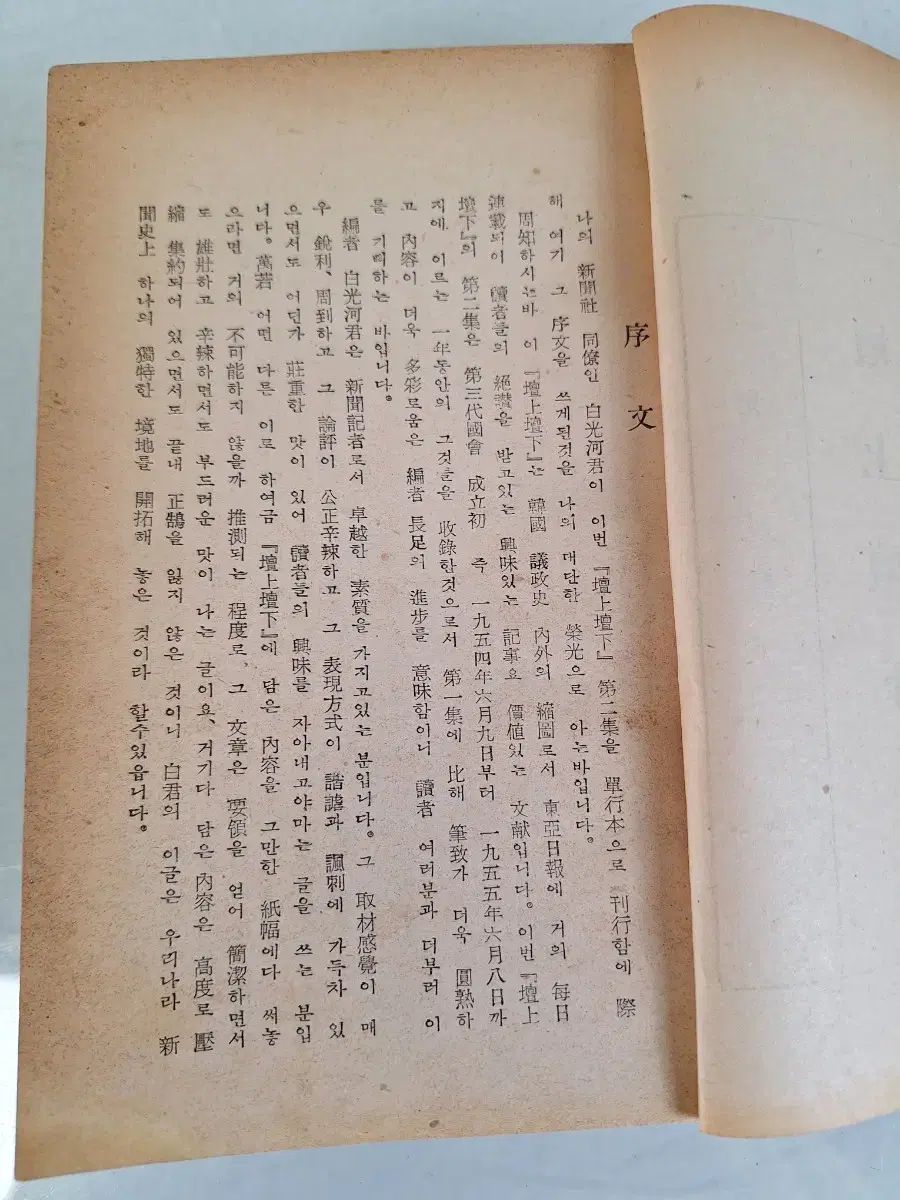 序文
나의 新聞社 同僚인 白光河君이 이번 『壇上壇下』 第二集을 單行本으로 刊行함에 際
해 여기 그 序文을 쓰게된것을 나의 대단한 榮光으로 아는바입니다。
周知하시는바 이 『壇上壇下』는 韓國 議政史 內外의 縮圖로서 東亞日報에 거의 每日
連載되어 讀者들의 絕讚을 받고있는 興味있는 記事요 價値있는 文献입니다。 이번 『壇上
壇下』의 第二集은 第三代國會 成立初 즉 一九五四年六月九日부터 一九五五年六月八日까
지에 이르는 一年동안의 그것들을 收錄한것으로서 第一集에 比해 筆致가 더욱 圓熟하
고 內容이 더욱 多彩로움은 編者 長足의 進步를 意味함이니 讀者 여러분과 더부러 이
를 기뻐하는 바입니다。
編者 白光河君은 新聞記者로서 卓越한 素質을 가지고있는 분입니다。 그 取材感覺이 매
우 銳利、周到하고 그 論評이 公正辛辣하고 그 表現方式이 諧謔과 諷刺에 가득차 있
으면서도 어딘가 莊重한 맛이 있어 讀者들의 興味를 자아내고야마는 글을 쓰는 분입
니다。 萬若 어떤 다른 이로 하여금 『壇上壇下』에 담은 內容을 그만한 紙幅에다 써놓
으라면 거의 不可能하지 않을까 推測되는 程度로、 그 文章은 要領을 얻어 簡潔하면서
도 雄壯하고 辛辣하면서도 부드러운 맛이 나는 글이요、 거기다 담은 內容은 高度로 壓
縮 集約되어 있으면서도 끝내 正鵠을 잃지 않은 것이니 白君의 이글은 우리나라 新
聞史上 하나의 獨特한 境地를 開拓해 놓은 것이라 할수있읍니다。